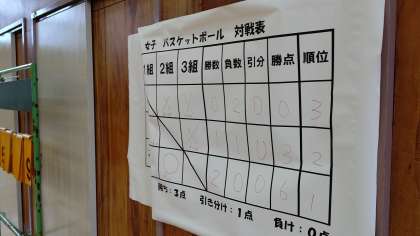 女子 バスケットボール 対戦表
1組 2組 3組 勝数 負数 引分 勝点 順位
0 2 0 0 3
1 1 0 3 2
2 0 0 6 1
勝ち:3点 引き分け:1点 負け:0点